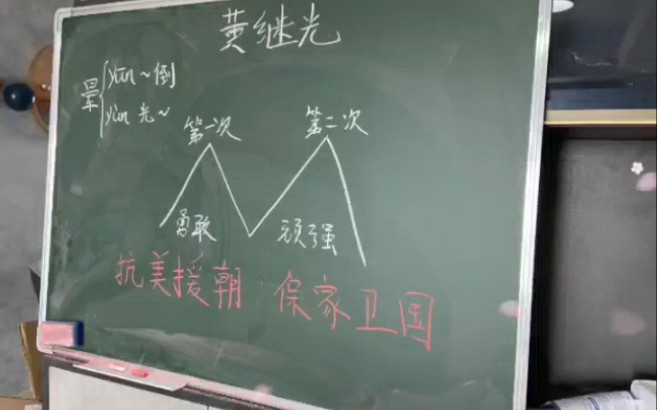 黄继光
晕 yūn ~倒
yùn 光~
第一次 第二次
勇敢 顽强
抗美援朝 保家卫国